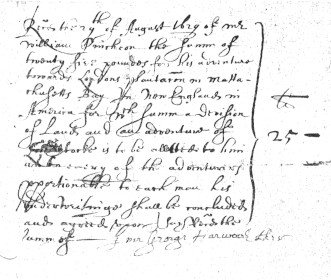 Receaved 29th of August 1629 of mr
William Pinchcon the summ of
twenty five poundes for his adventure
towards Londons plantacon in Matta-
chusetts Bay in New England in
America for wch summ a devision
of Lands and an adventure of
stocke is to be alloted to him
as to every of the adventurers
pportionable to each man his
underwritinge shall be concluded
and agreed upon I say Recd the
summ of p me George Harwood Threr
25 —